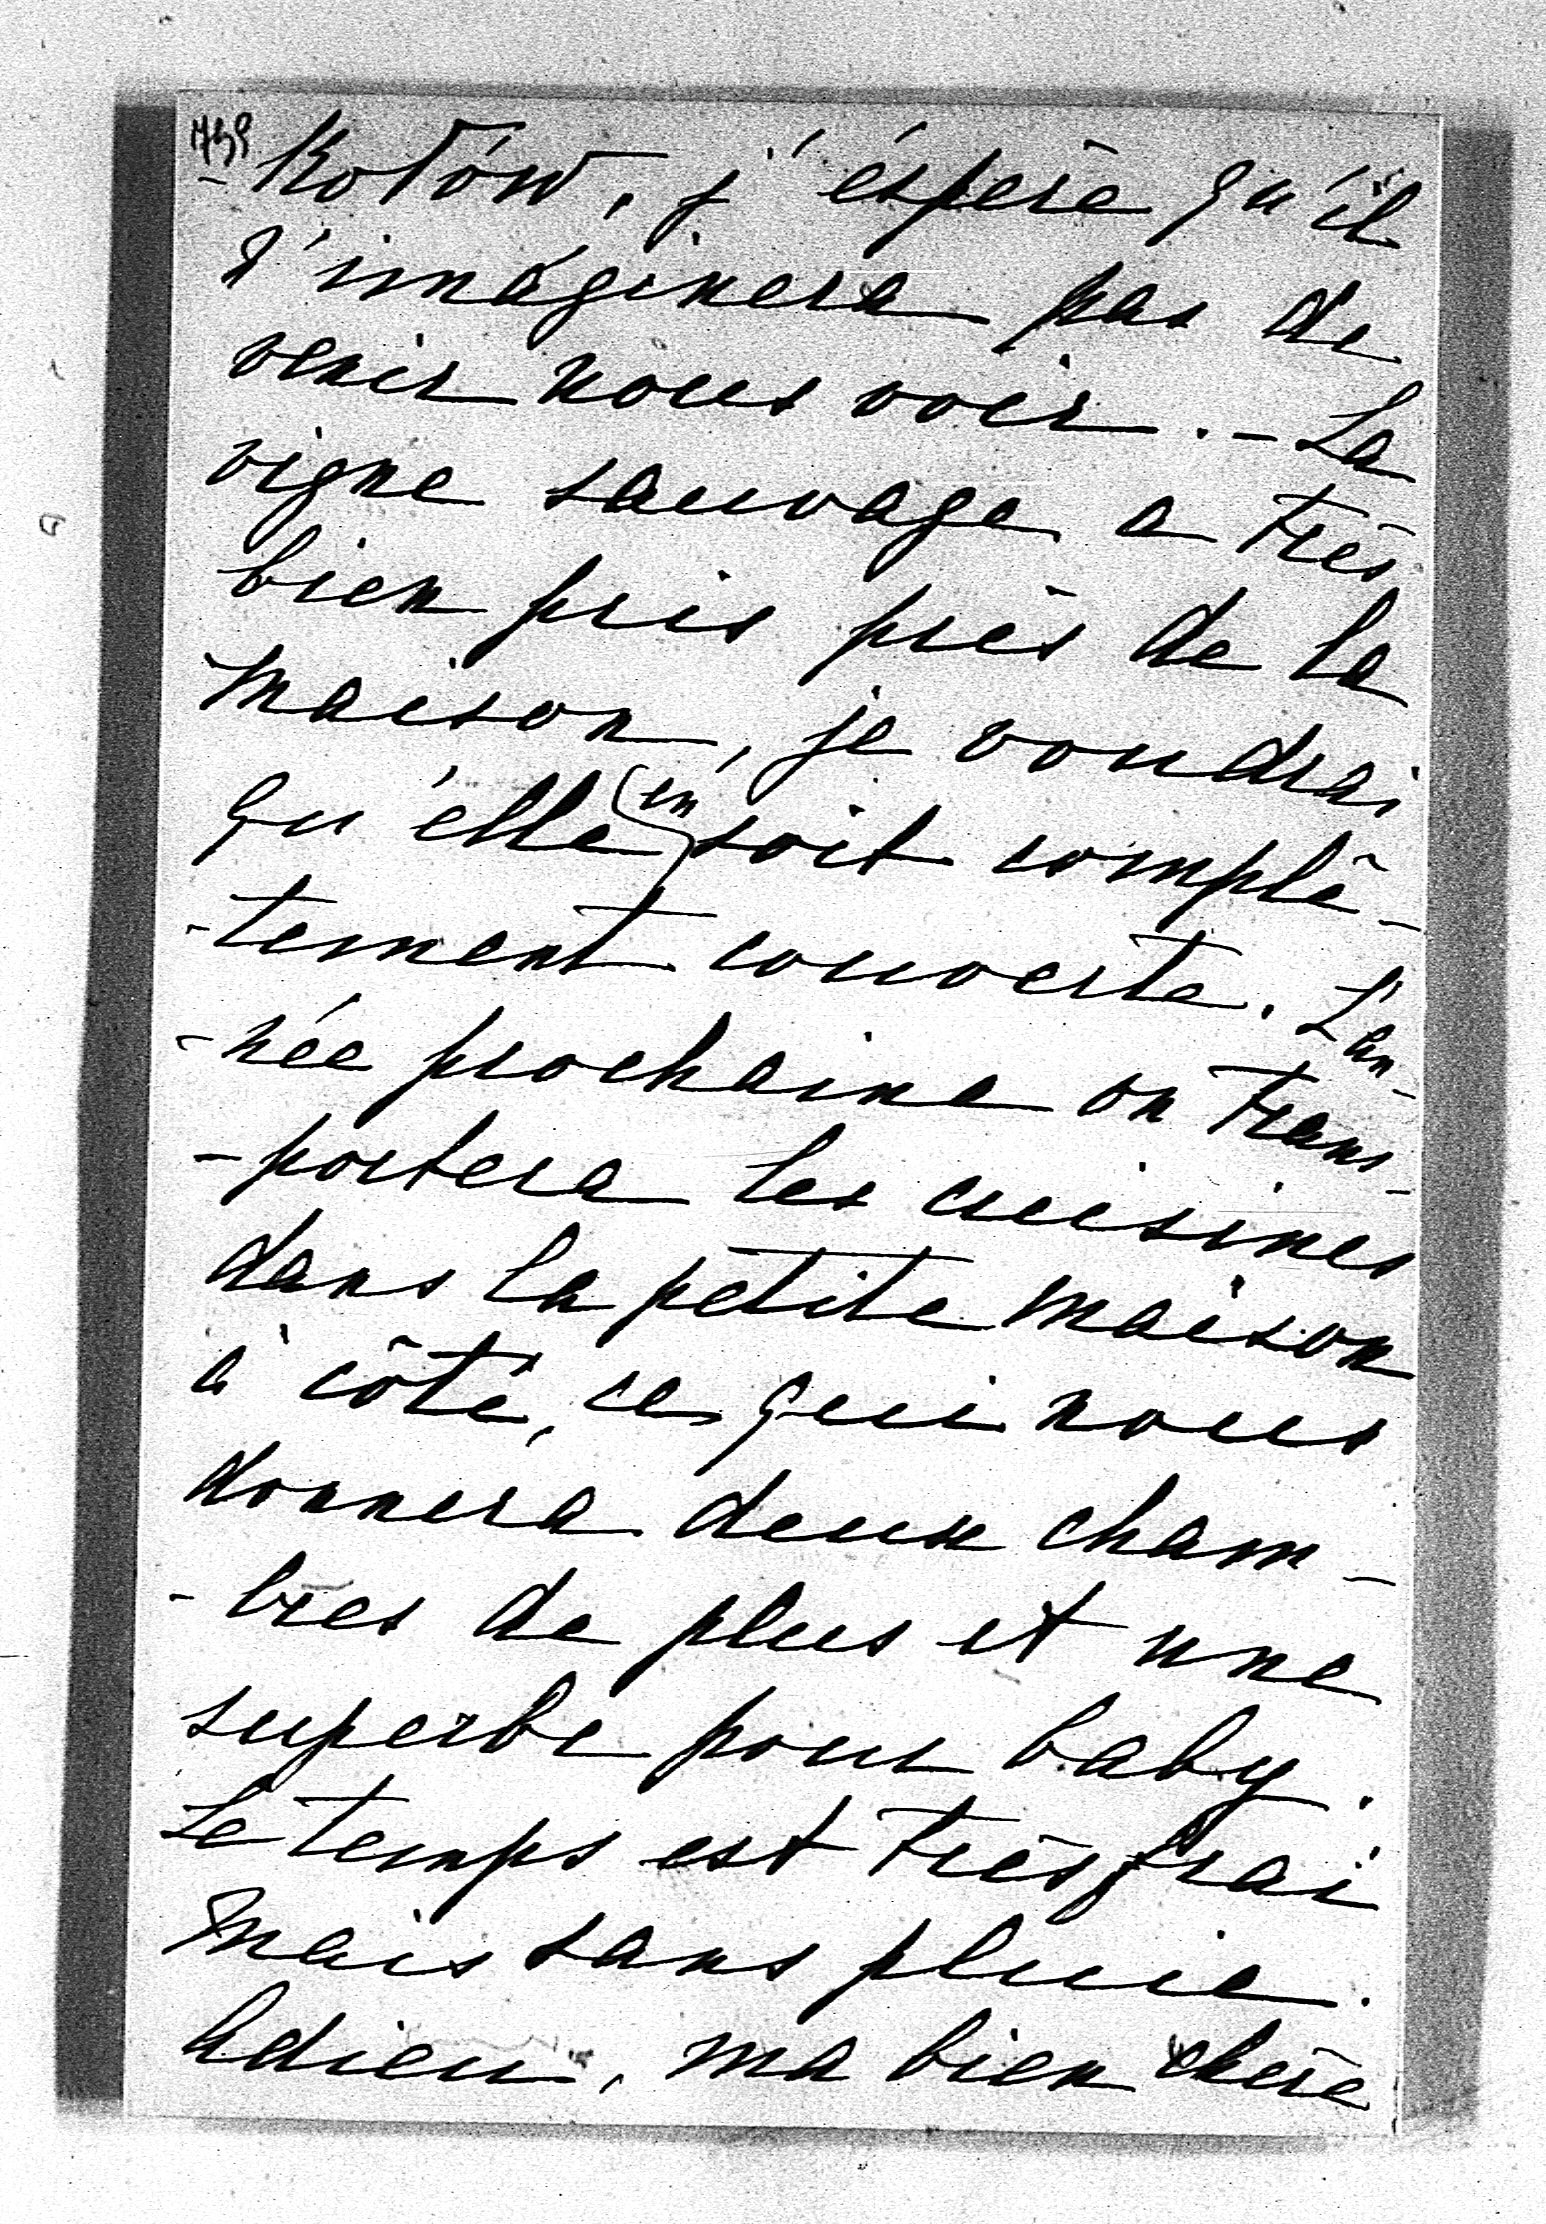 -Kotów, j'éspère qu'il
s'imaginera pas de
venir nous voir. - La
vigne sauvage a très
bien pris près de la
maison, je voudrai
qu'elle (en) soit complè-
-tement couverte. L'an-
-née prochaine on trans-
-portera les cuisines
dans la petite maison
à côté, ce qui nous
donnera deux cham-
-bres de plus et une
superbe pour baby.
Le temps est très frai
mais sans pluie.
Adieu, ma bien chère